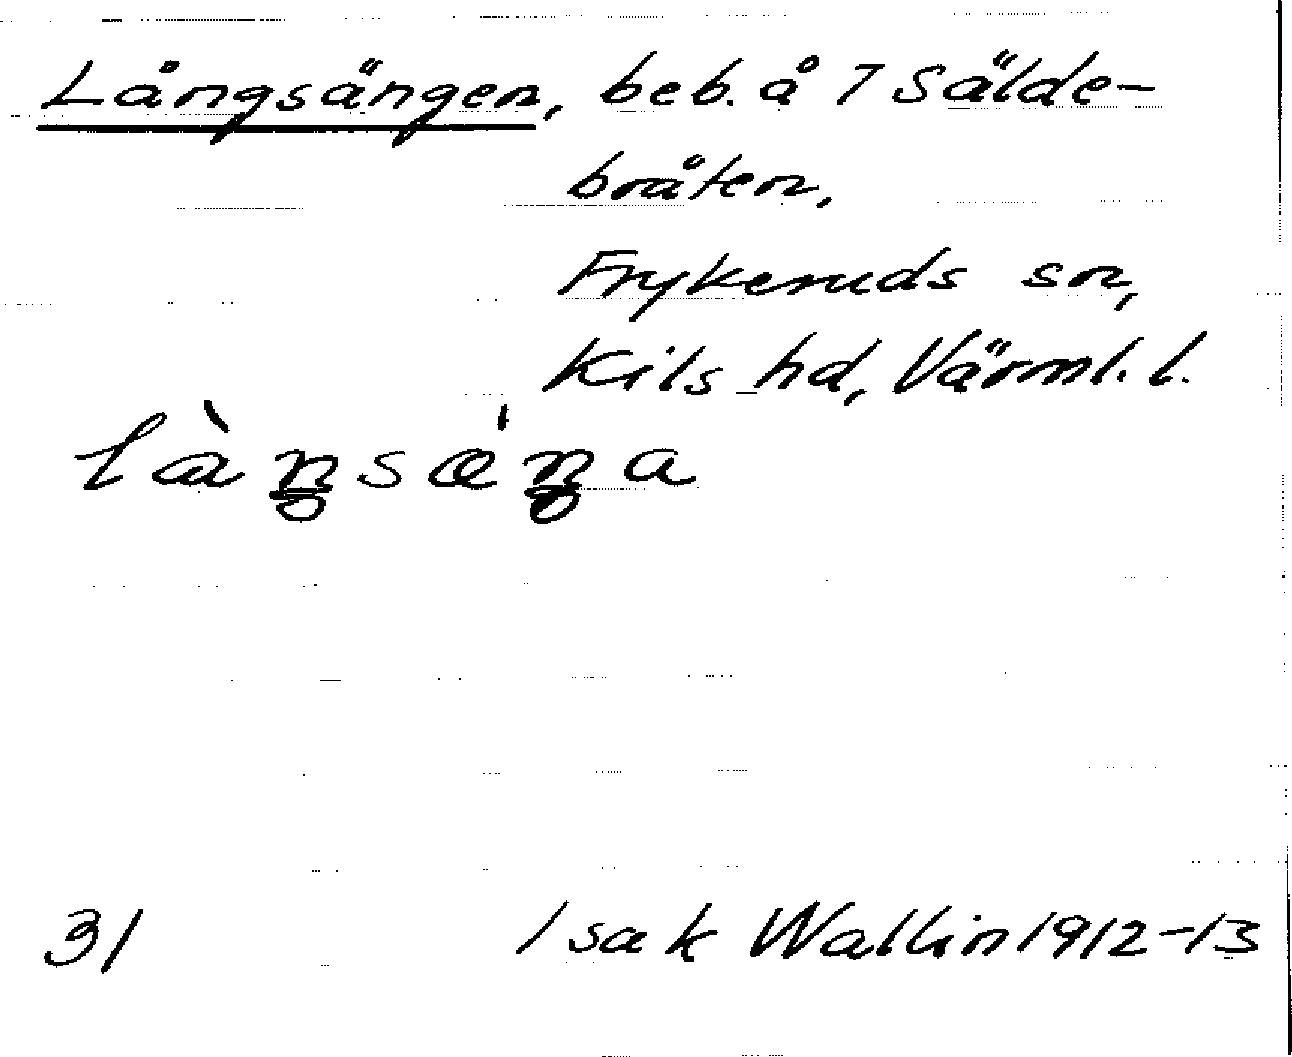 Långsängen, beb. å 7 Sälde-
bråten,
Frykeruds sn,
Kils hd, Värml. l.
31 Isak Wallin 1912-13